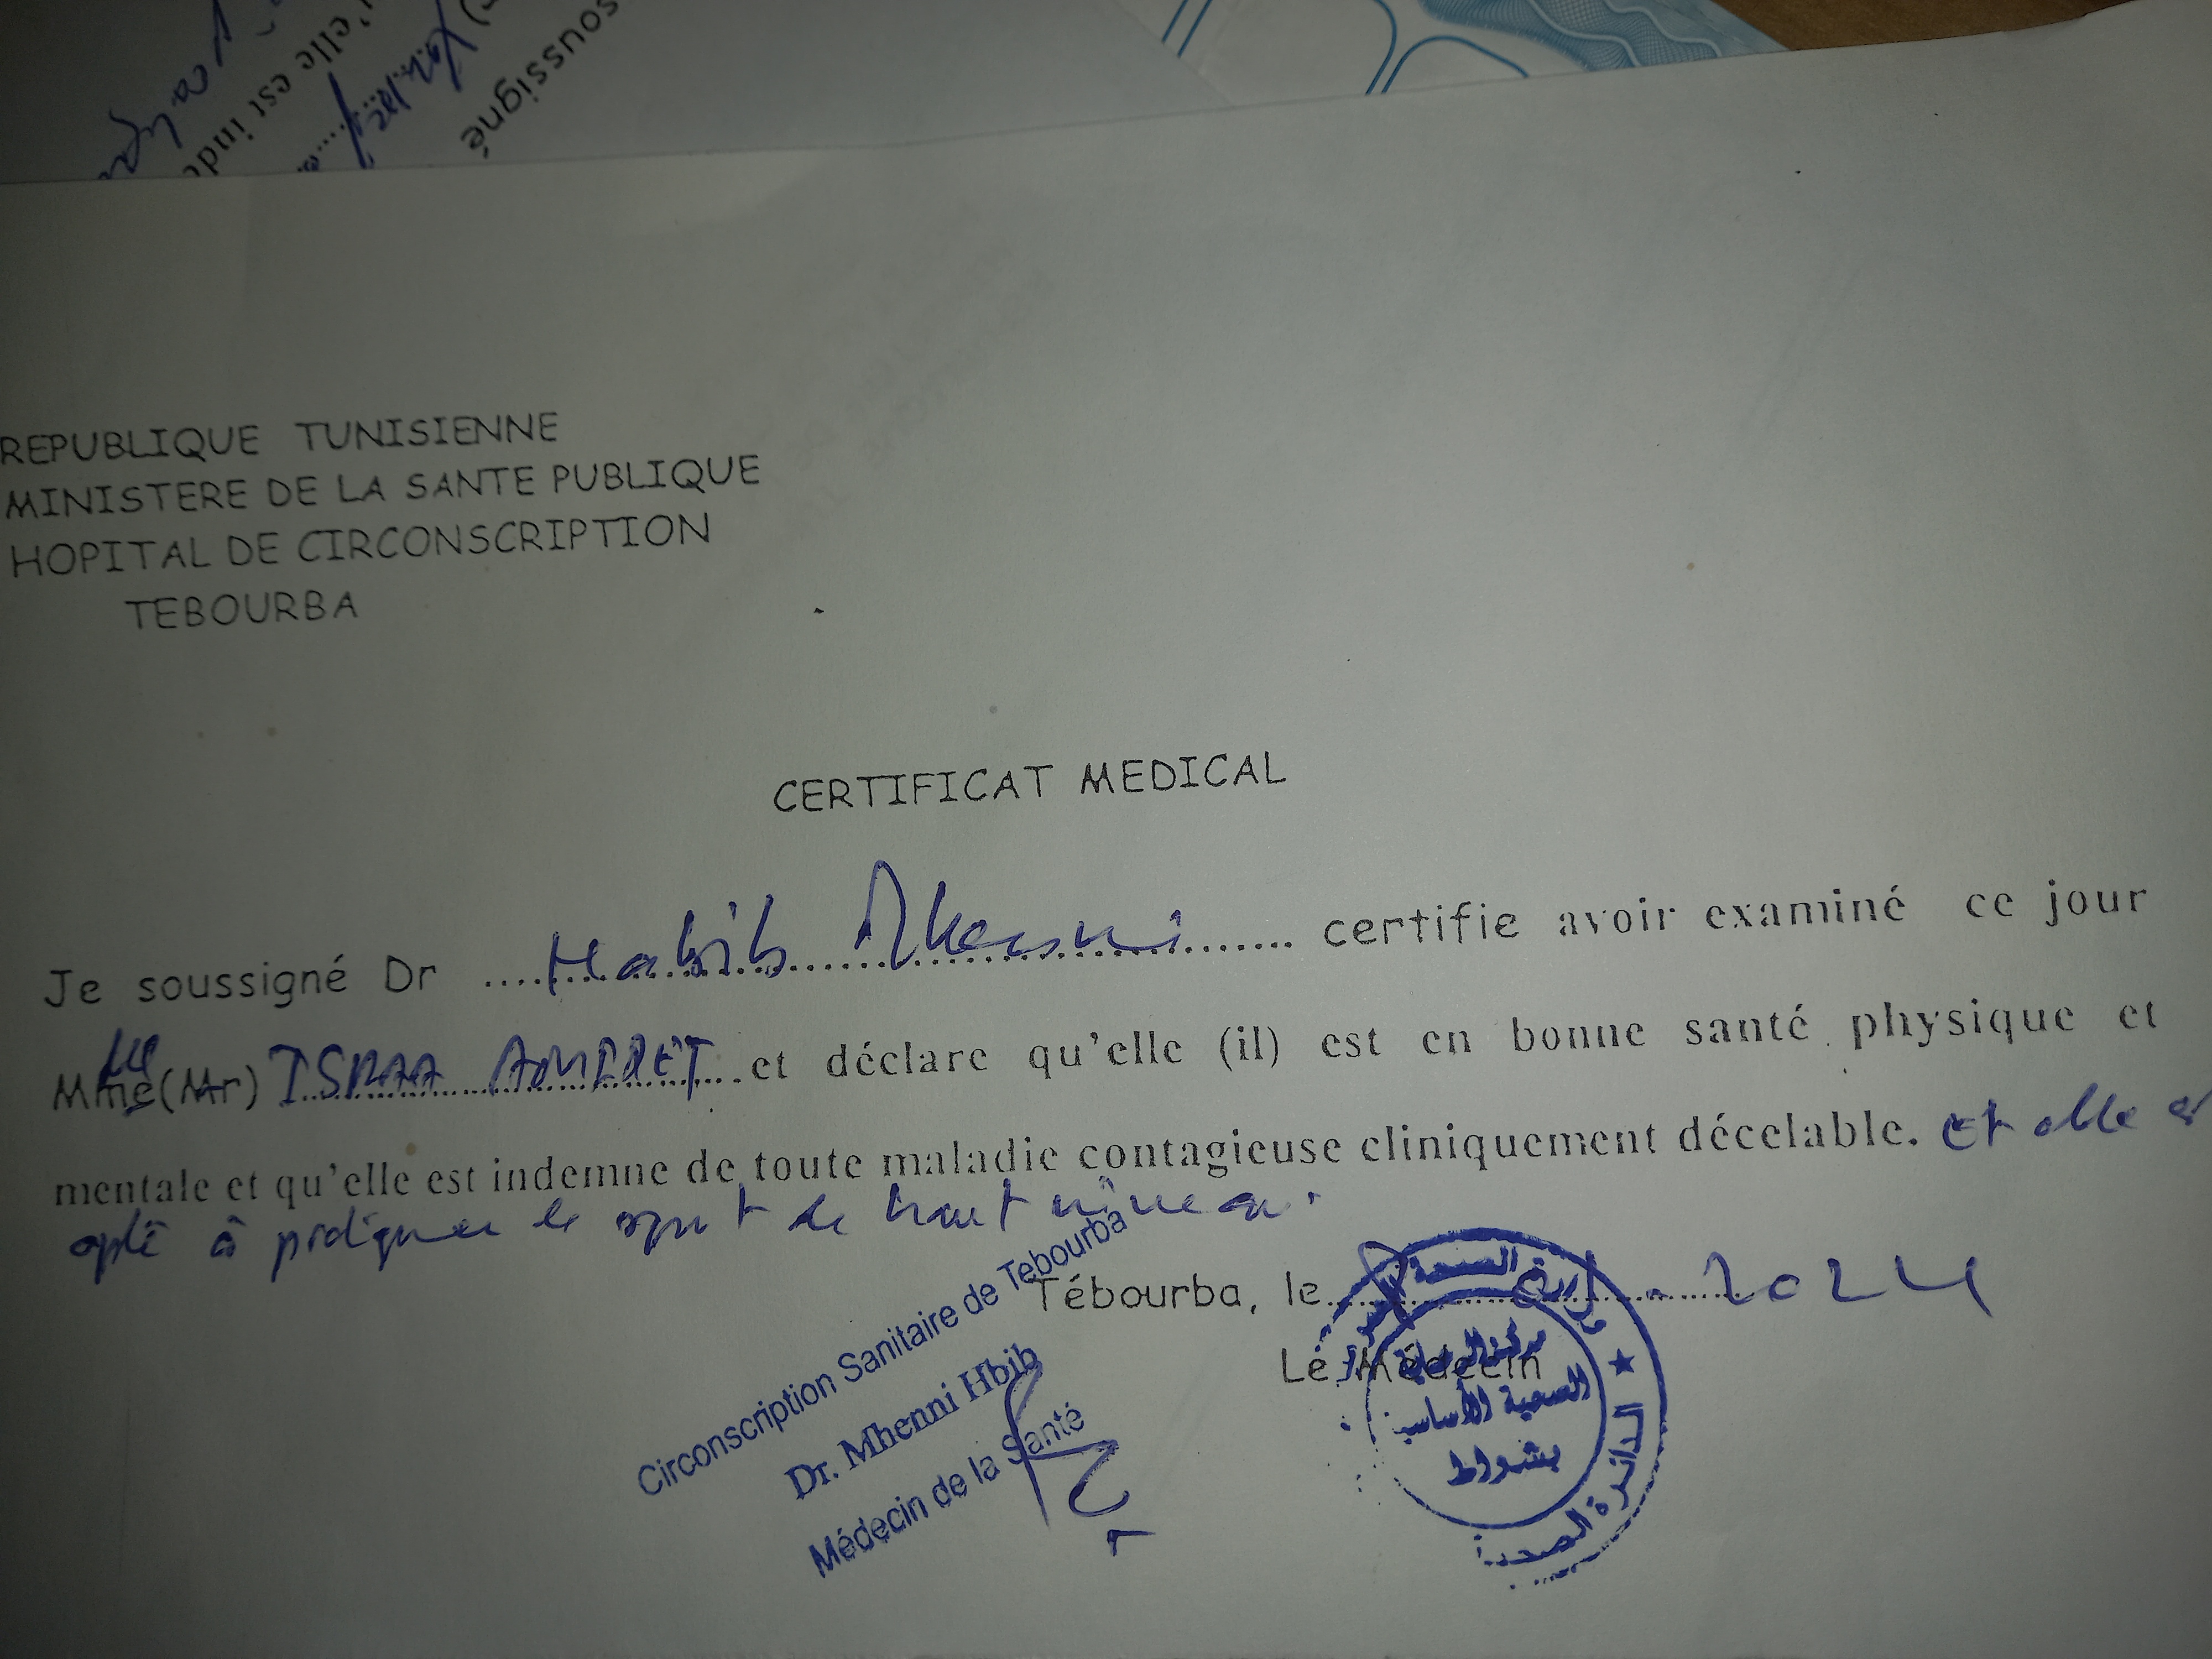 soussigné
elle est inde
REPUBLIQUE TUNISIENNE
MINISTERE DE LA SANTE PUBLIQUE
HOPITAL DE CIRCONSCRIPTION
TEBOURBA
CERTIFICAT MEDICAL
Je soussigné Dr Habib Mhenni certifie avoir examiné ce jour
Mme(Mr) ISRAA et déclare qu'elle (il) est en bonne santé physique et
mentale et qu'elle est indemne de toute maladie contagieuse cliniquement décelable. et elle
apte à pratiquer le sport de haut niveau.
Tébourba, le 2024
Le Médecin
Circonscription Sanitaire de Tebourba
Dr. Mhenni Hbib
Médecin de la Santé
وزارة الصحة
الدائرة الصحية
مركز الرعاية
الصحية الأساسية
بشواط